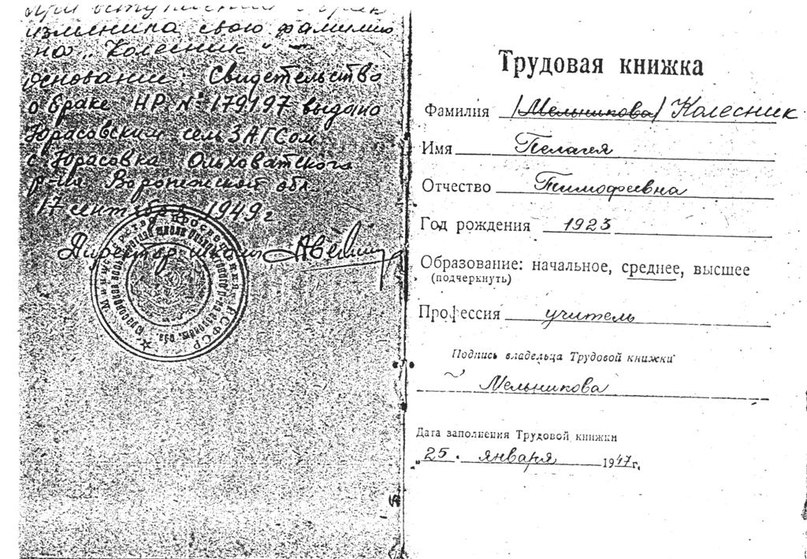 При вступлении в брак
изменила свою фамилию
на „Колесник" –
основание: Свидетельство
о браке НР № 179197 выдано
Юрасовским сельЗАГСом
с. Юрасовка Ольховатского
р-на Воронежской обл.
17 сентября 1949 г
Директор школы
Трудовая книжка
Фамилия (Мельникова) Колесник
Имя Пелагея
Отчество Тимофеевна
Год рождения 1923
Образование: начальное, среднее, высшее
(подчеркнуть)
Профессия учитель
Подпись владельца Трудовой книжки
Мельникова
Дата заполнения Трудовой книжки
„25. января 1947 г.